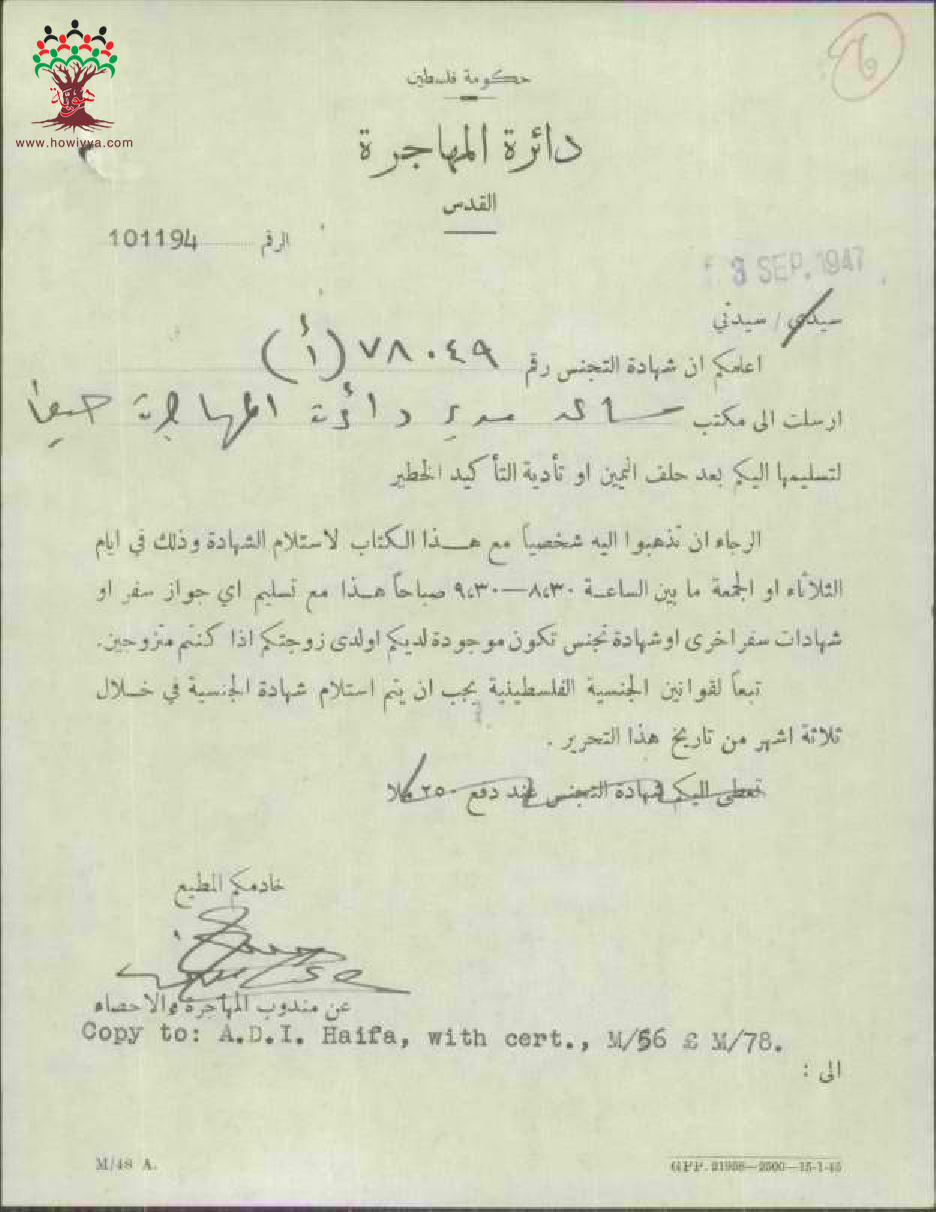 هوية
www.howiyya.com
حكومة فلسطين
دائرة المهاجرة
القدس
الرقم 101194
3 SEP. 1947
سيدي / سيدتي
اعلمكم ان شهادة التجنس رقم ٧٨٠٤٩ (أ)
ارسلت الى مكتب مساعد مدير دائرة المهاجرة حيفا
لتسليمها اليكم بعد حلف اليمين او تأدية التأكيد الخطير
الرجاء ان تذهبوا اليه شخصياً مع هـذا الكتاب لاستلام الشهادة وذلك في ايام
الثلاثاء او الجمعة ما بين الساعـة ٨،٣٠—٩،٣٠ صباحاً هـذا مع تسليم اي جواز سفر او
شهادات سفر اخرى او شهادة تجنس تكون موجودة لديكم او لدى زوجتكم اذا كنتم متزوجين.
تبعاً لقوانين الجنسية الفلسطينية يجب ان يتم استلام شهادة الجنسية في خـلال
ثلاثة اشهر من تاريخ هذا التحرير .
تعطى اليكم شهادة التجنس عند دفع ٢٥٠ ملا
خادمكم المطيع
عن مندوب المهاجرة والاحصاء
Copy to: A.D.I. Haifa, with cert., M/56 £ M/78.
الى :
M/48 A.
GPP. 21938—2500—15-1-45